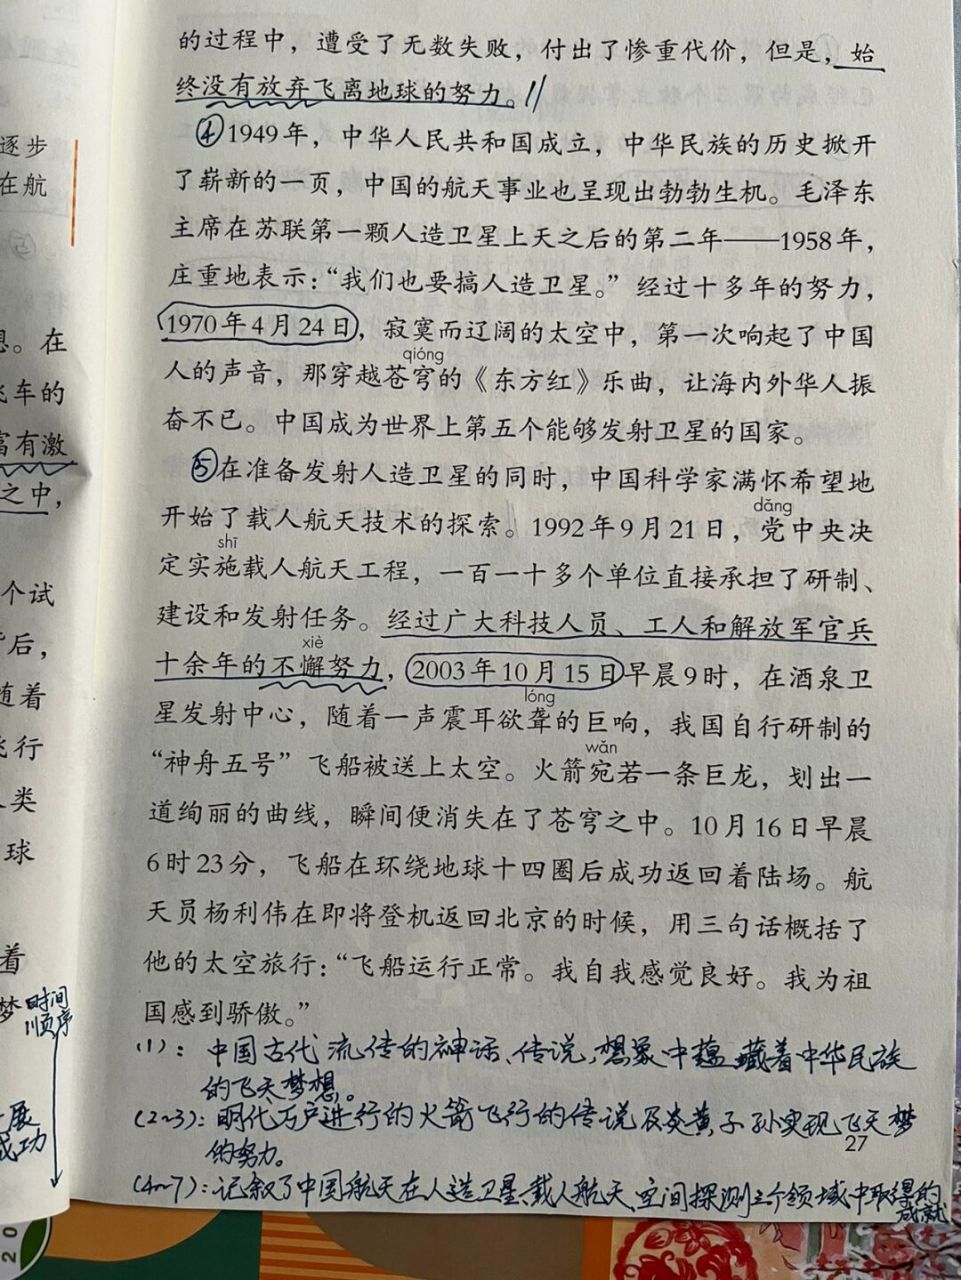 的过程中，遭受了无数失败，付出了惨重代价，但是，始
终没有放弃飞离地球的努力。
④1949年，中华人民共和国成立，中华民族的历史掀开
了崭新的一页，中国的航天事业也呈现出勃勃生机。毛泽东
主席在苏联第一颗人造卫星上天之后的第二年——1958年，
庄重地表示：“我们也要搞人造卫星。”经过十多年的努力，
1970年4月24日，寂寞而辽阔的太空中，第一次响起了中国
qióng
人的声音，那穿越苍穹的《东方红》乐曲，让海内外华人振
奋不已。中国成为世界上第五个能够发射卫星的国家。
⑤在准备发射人造卫星的同时，中国科学家满怀希望地
dǎng
开始了载人航天技术的探索。1992年9月21日，党中央决
shī
定实施载人航天工程，一百一十多个单位直接承担了研制、
建设和发射任务。经过广大科技人员、工人和解放军官兵
xiè
十余年的不懈努力，2003年10月15日早晨9时，在酒泉卫
lóng
星发射中心，随着一声震耳欲聋的巨响，我国自行研制的
wǎn
“神舟五号”飞船被送上太空。火箭宛若一条巨龙，划出一
道绚丽的曲线，瞬间便消失在了苍穹之中。10月16日早晨
6时23分，飞船在环绕地球十四圈后成功返回着陆场。航
天员杨利伟在即将登机返回北京的时候，用三句话概括了
他的太空旅行：“飞船运行正常。我自我感觉良好。我为祖
国感到骄傲。”
(1)：中国古代流传的神话、传说，想象中蕴藏着中华民族
的飞天梦想。
(2~3)：明代万户进行的火箭飞行的传说及炎黄子孙实现飞天梦
的努力。
27
(4~7)：记叙了中国航天在人造卫星、载人航天、空间探测三个领域中取得的
成就
逐步
在航
。在
车的
富有激
之中，
个试
后，
随着
飞行
人类
球
着
梦
时间
顺序
展
成功
20